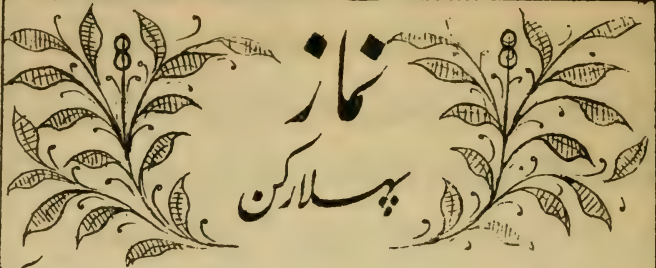 نماز
پہلا رکن